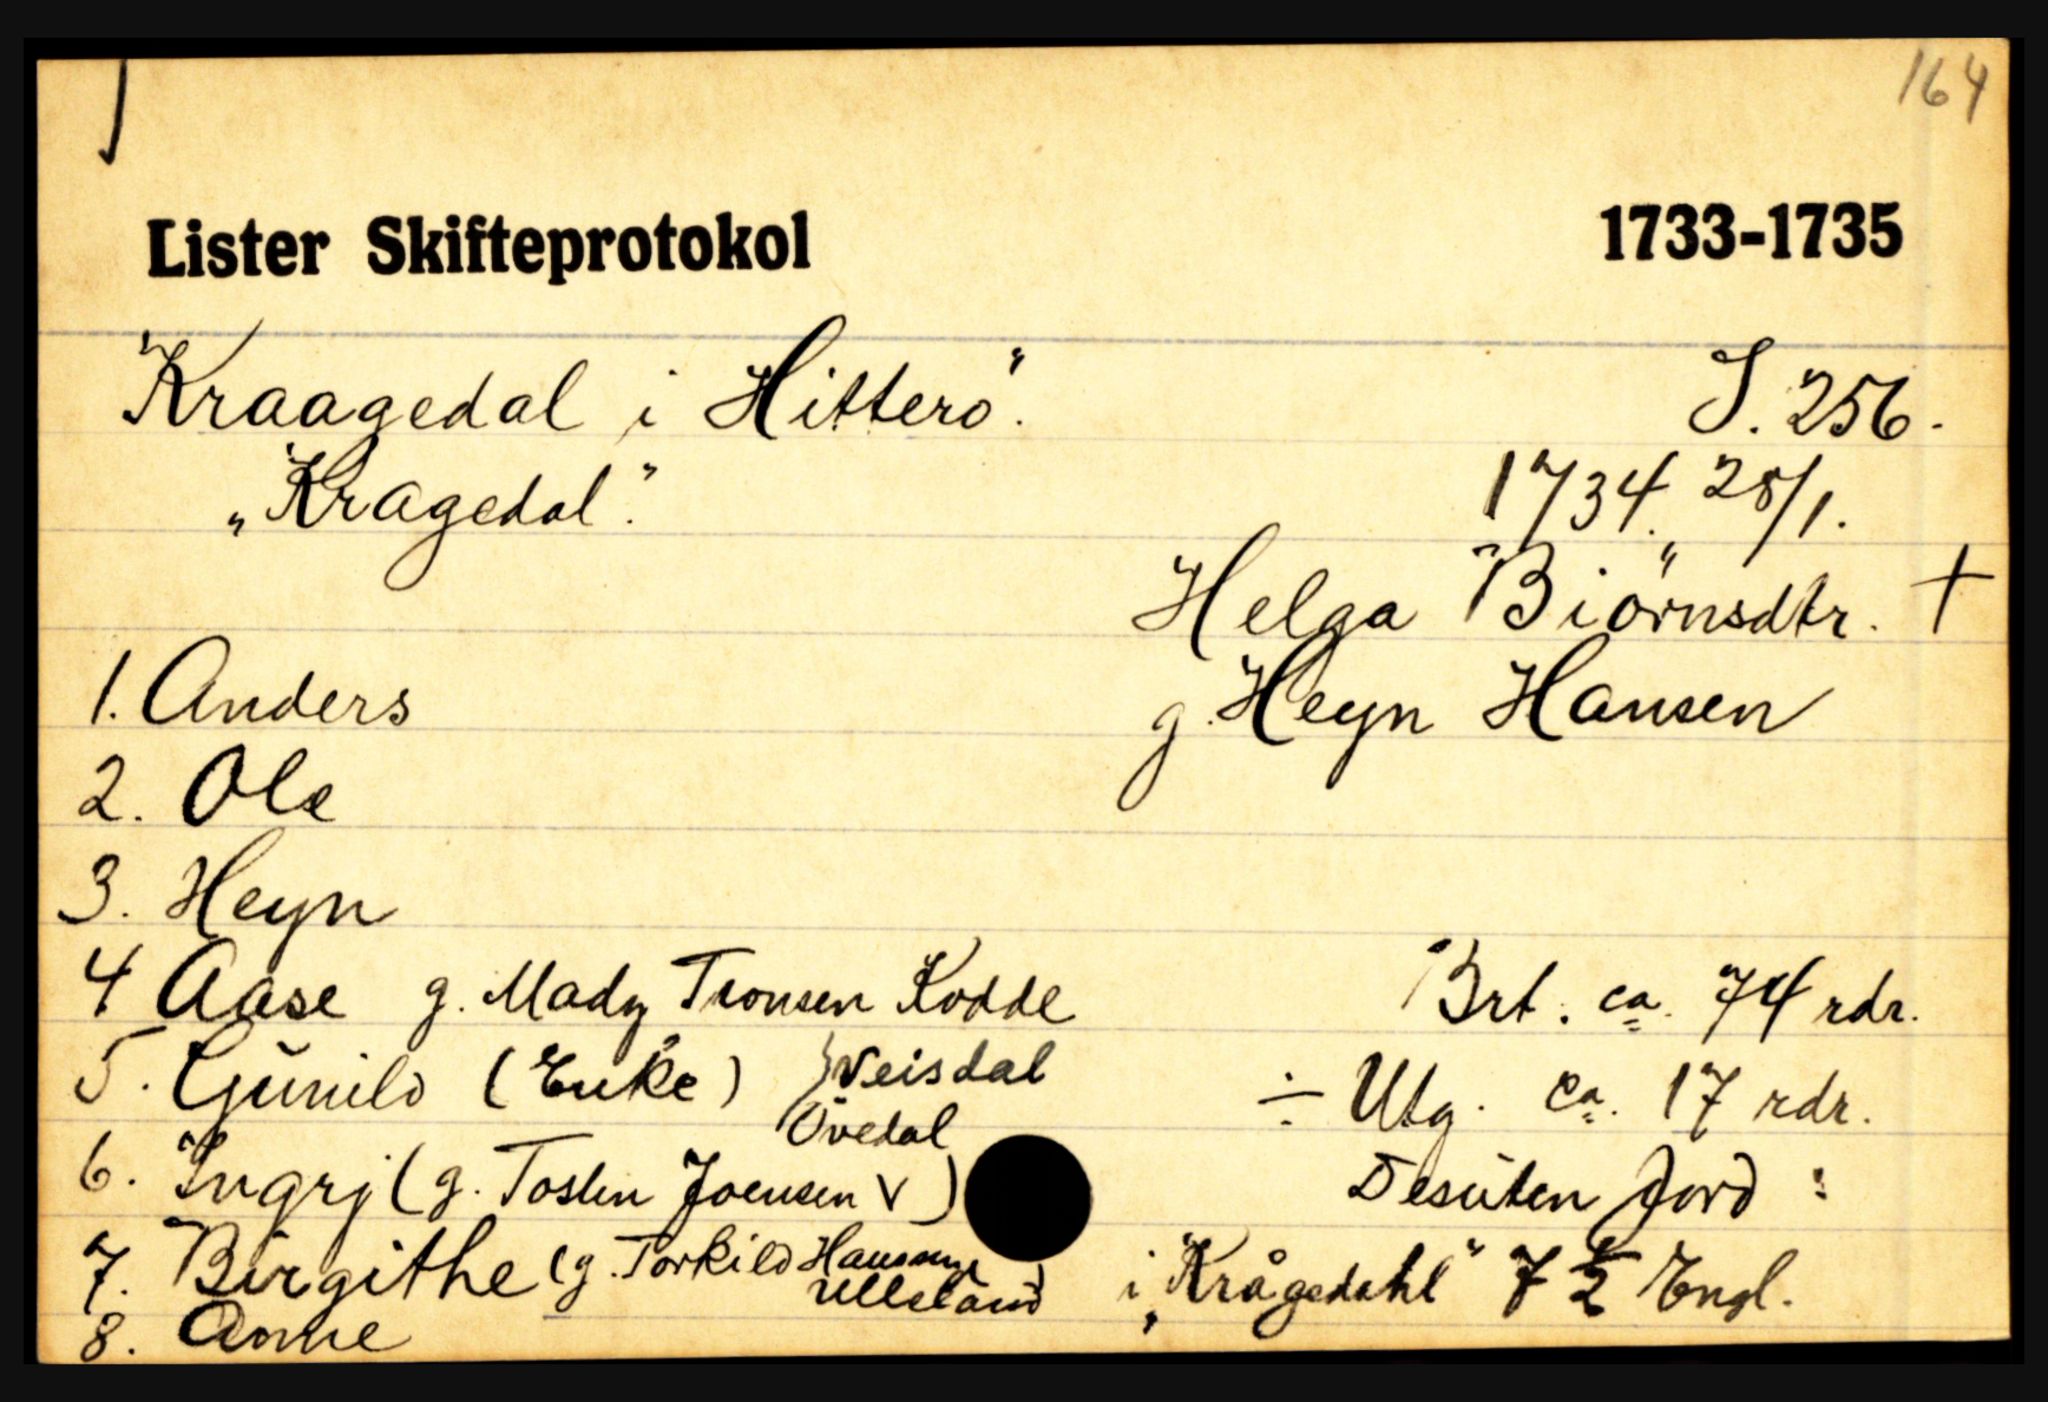 164
Lister Skifteprotokol 1733-1735
"Kraagedal i Hitterö". S. 256.
"Kragedal". 1734. 28/1.
Helga Biörnsdtr. +
1. Anders g. Heyn Hansen
2. Ole
3. Heyn
4 Aase g. Mads Tronsen Kodde Brt. ca. 74 rdr.
5. Gunild (Enke) Veisdal ÷ Utg. ca. 17 rdr.
Övedal
6. Ingrj (g. Tosten Joensen V) Desuten Jord :
7. Birgithe (g. Torkild Hansen i "Krågedahl" 7 1/2 Engl.
Ulleland)
8. Anne